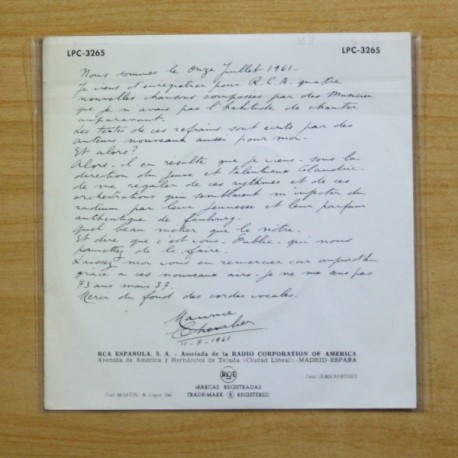 LPC-3265 LPC-3265
Nous sommes le Onze Juillet 1961.
Je viens d'enregistrer pour R.C.A. quatre
nouvelles chansons composées par des Musiciens
que je n'avais pas l'habitude de chanter
auparavant.
Les textes de ces refrains sont écrits par des
auteurs nouveaux aussi pour moi.
Et alors?
Alors. Il en resulte que je viens. sous la
direction du jeune et talentueux Claudric.
de me regaler de ces rythmes et de ces
orchestrations qui semblaient m'injecter du
radium par leur jeunesse et leur parfum
authentique de faubourg.
Quel beau metier que le notre.
Et dire que c'est vous. Public. qui nous
permettez de le faire.
Laissez moi vous en remercier car aujourd'hui
grâce a ces nouveaux airs. je ne me sens pas
73 ans mais 37.
Merci du fond des cordes vocales.
Maurice
Chevalier
11-7-1961
RCA ESPAÑOLA, S. A. - Asociada de la RADIO CORPORATION OF AMERICA
Avenida de América y Hernández de Tejada (Ciudad Lineal) - MADRID-ESPAÑA
RCA
MARCAS REGISTRADAS
TRADE-MARK ® REGISTERED